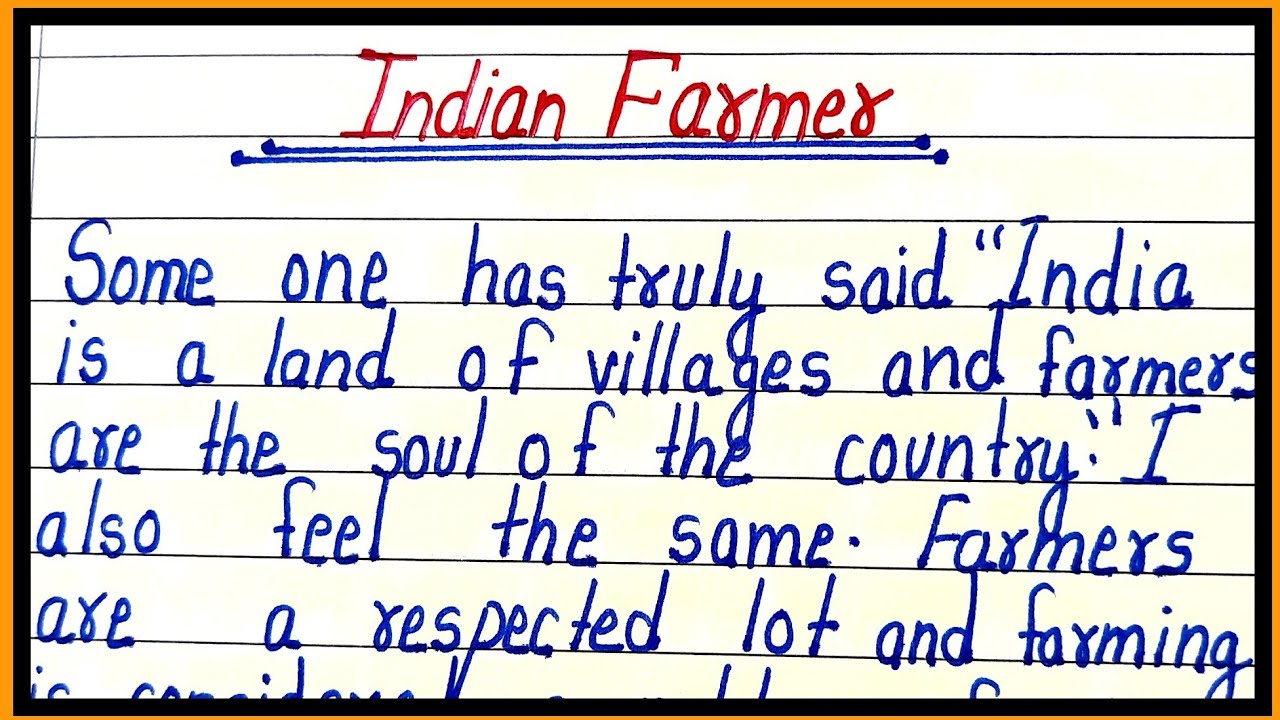 Indian Farmer
Some one has truly said "India
is a land of villages and farmers
are the soul of the country." I
also feel the same. Farmers
are a respected lot and farming
is considered